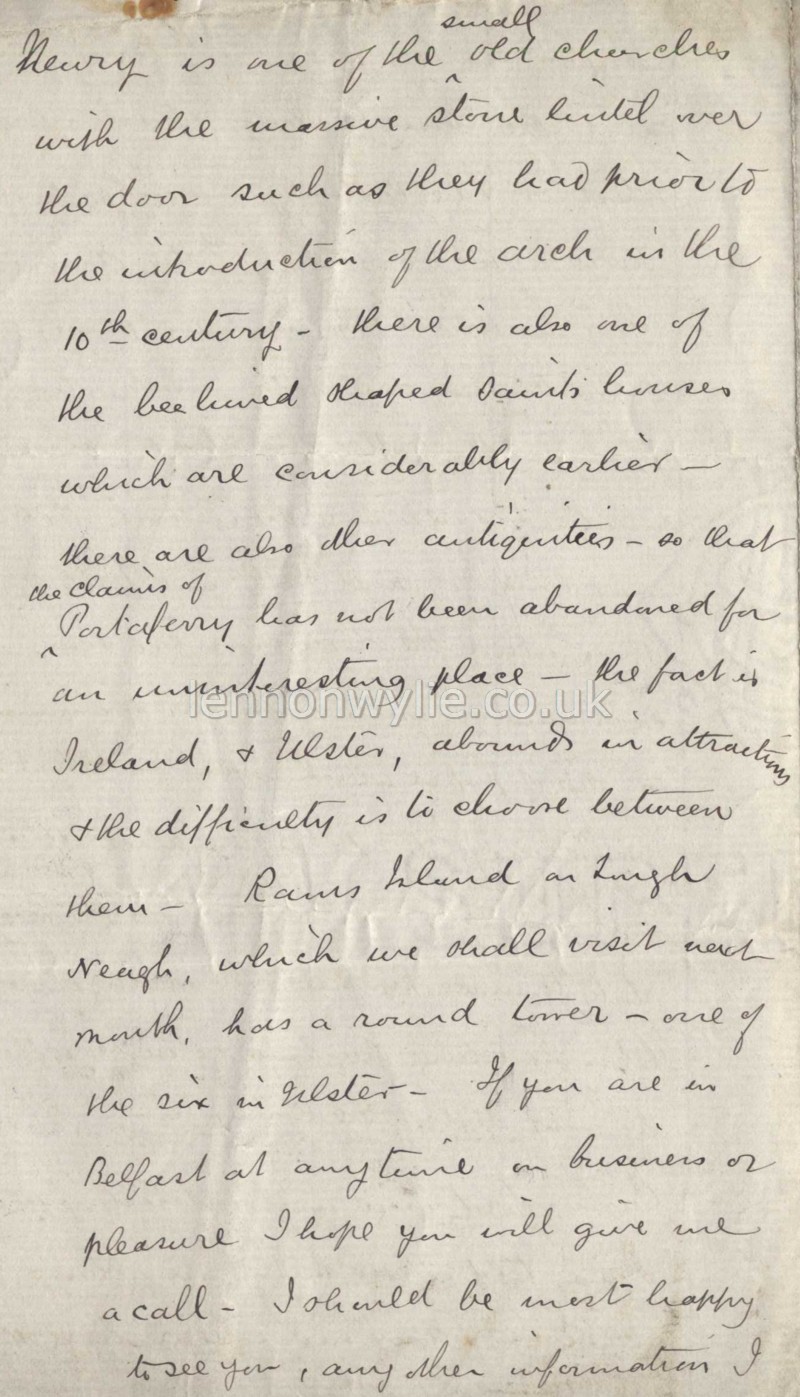 small
Newry is one of the ^ old churches
with the massive stone lintel over
the door such as they had prior to
the introduction of the arch in the
10th century - there is also one of
the bee hived shaped saints houses
which are considerably earlier -
there are also other antiquities - so that
the claims of
^ Portaferry has not been abandoned for
an uninteresting place - the fact is
lennonwylie.co.uk
Ireland, & Ulster, abounds in attractions
& the difficulty is to choose between
them - Rams Island on Lough
Neagh, which we shall visit next
month, has a round tower - one of
the six in Ulster - If you are in
Belfast at anytime on business or
pleasure I hope you will give me
a call - I should be most happy
to see you, any other information I